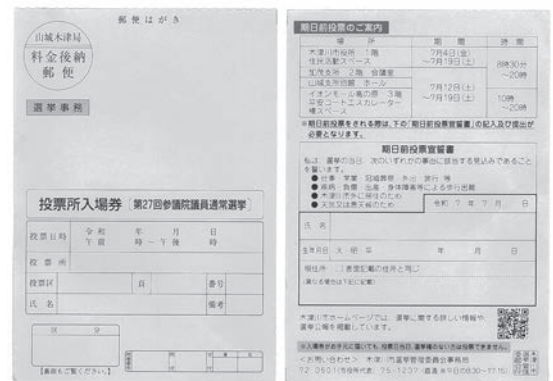 郵便はがき
山城木津局
料金後納
郵便
選挙事務
投票所入場券〔第27回参議院議員通常選挙〕
投票日時 令和 年 月 日
午前 時 ～ 午後 時
投票所
投票区 頁 番号
氏名 備考
区分
【裏面もご覧ください。】
期日前投票のご案内
場所 期間 時間
木津川市役所 1階
住民活動スペース
7月4日(金)
～7月19日(土)
8時30分
～20時
加茂支所 2階 会議室
山城支所別館 ホール
7月12日(土)
～7月19日(土)
イオンモール高の原 3階
平安コートエスカレーター
横スペース
10時
～20時
※期日前投票をされる際は、下の「期日前投票宣誓書」の記入及び提出が
必要となります。
期日前投票宣誓書
私は、選挙の当日、次のいずれかの事由に該当する見込みであること
を誓います。
●仕事・学業・冠婚葬祭・外出・旅行 等
●疾病・負傷・出産・身体障害等による歩行困難
●木津川市外に居住のため
●天災又は悪天候のため
令和 7 年 7 月 日
氏名
生年月日 大・昭・平 年 月 日
現住所 □表面記載の住所と同じ
(異なる場合は下記に記載)
木津川市ホームページでは、選挙に関する詳しい情報や
選挙公報を掲載しています。
※入場券がお手元に届いても、投票日当日、選挙権のない方は投票できません。
<お問い合わせ> 木津川市選挙管理委員会事務局